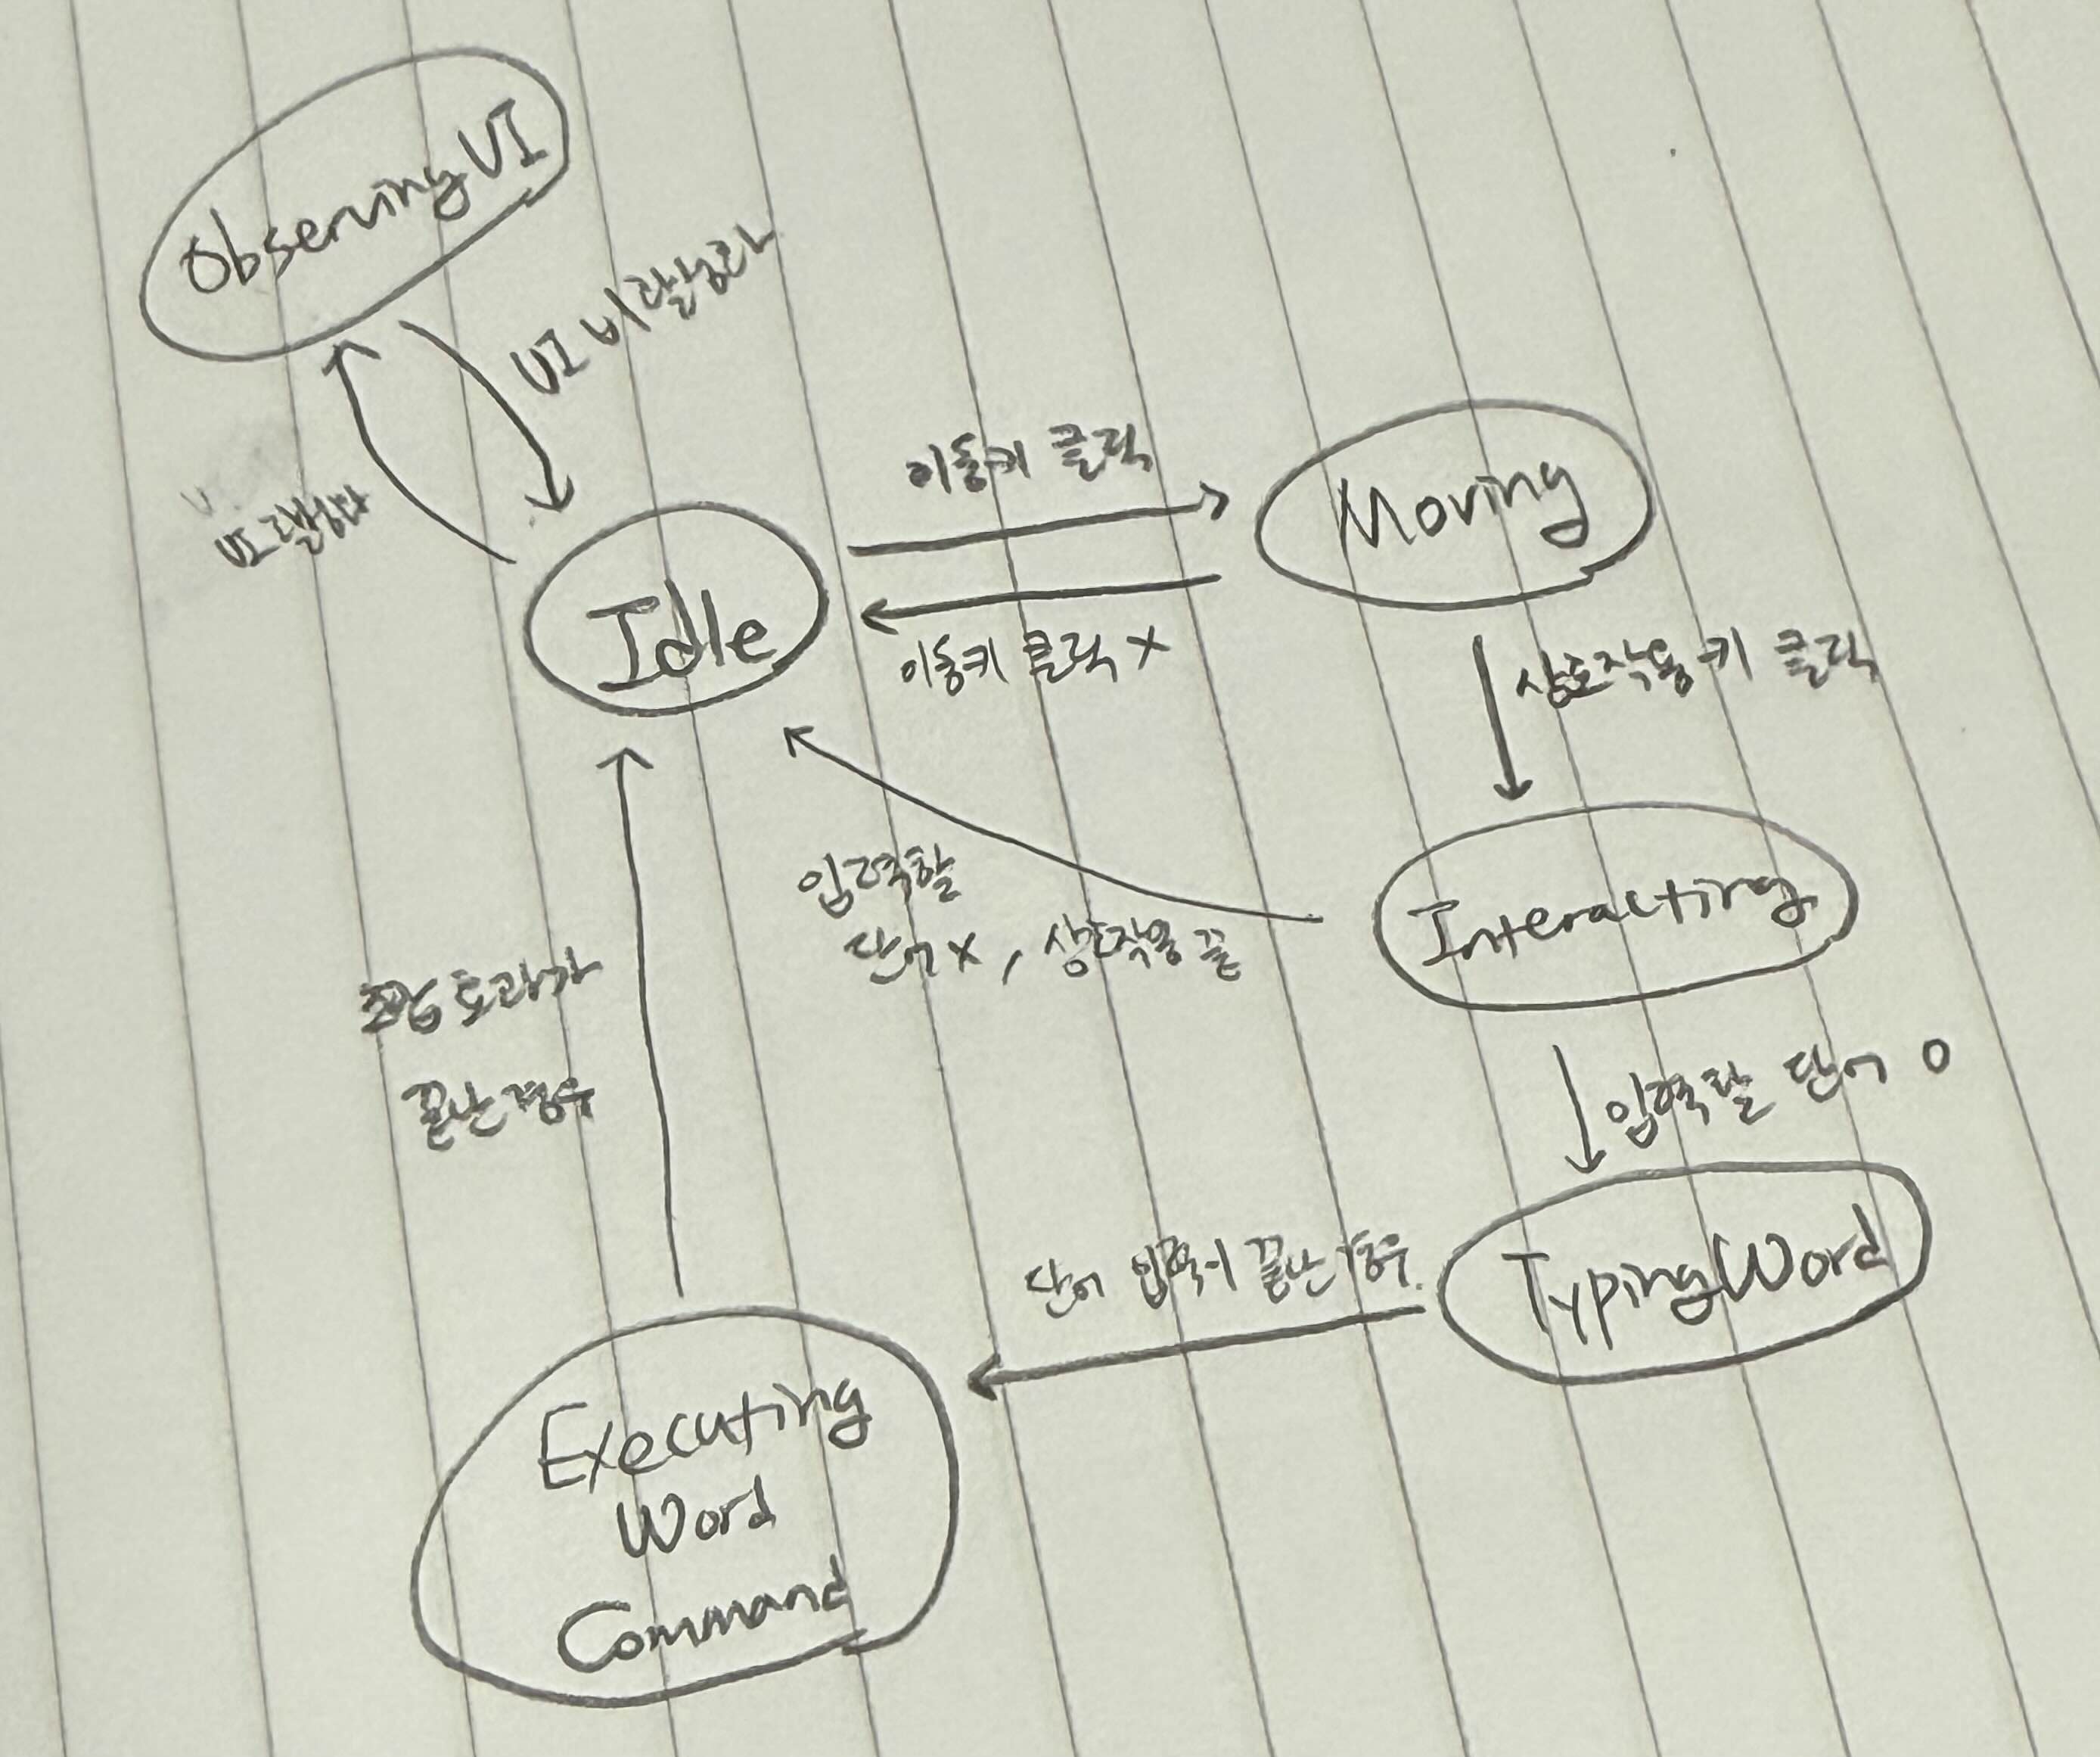 Observing UI
UI 비활성화
UI 활성화
이동키 클릭
Moving
Idle
이동키 클릭 X
상호작용 키 클릭
입력할
단어 X, 상호작용 끝
Interacting
효과가
끝난 경우
입력할 단어 O
단어 입력이 끝난 경우
TypingWord
Executing
Word
Command